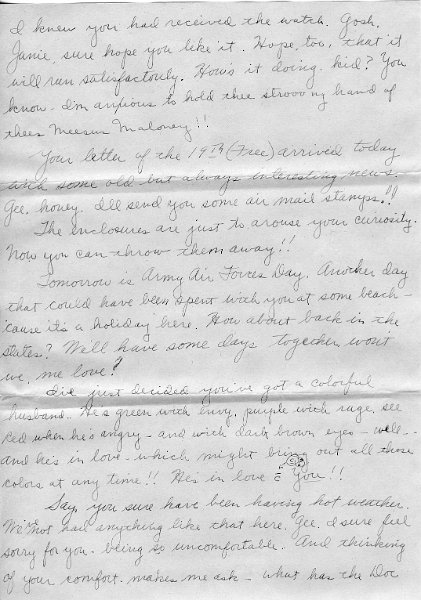 I knew you had received the watch. Gosh,
Janie, sure hope you like it. Hope, too, that it
will run satisfactorily. How's it doing, kid? You
know - I'm anxious to hold thee strooong hand of
thees Meesus Maloney!!
Your letter of the 19th (Free) arrived today
with some old but always interesting news.
Gee, honey, I'll send you some air mail stamps!!
The enclosures are just to arouse your curiosity.
Now you can throw them away!!
Tomorrow is Army Air Forces Day. Another day
that could have been spent with you at some beach -
'cause it's a holiday here. How about back in the
States? We'll have some days together, won't
we, me love?
I've just decided you've got a colorful
husband. He's green with envy, purple with rage, see
Red when he's angry - and with dark brown eyes - well..
And he's in love - which might bring out all those
colors at any time!! He's in love c̄ You!!
Say, you sure have been having hot weather.
We've not had anything like that here. Gee, I sure feel
sorry for you - being so uncomfortable. And thinking
of your comfort - makes me ask - what has the Doc